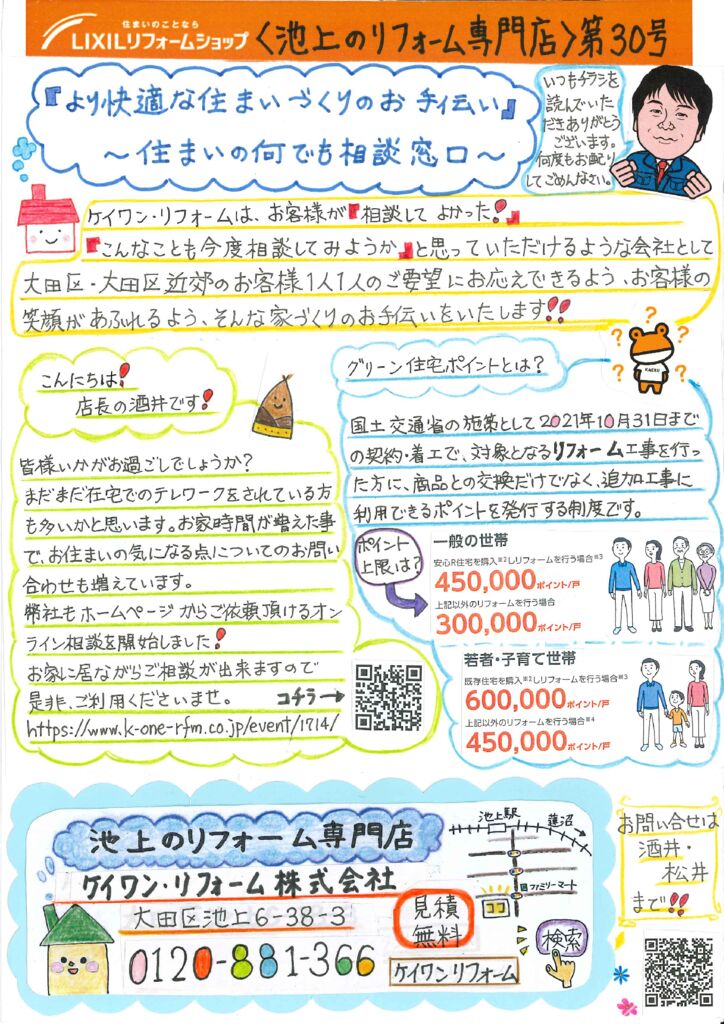 住まいのことなら
LIXILリフォームショップ 〈池上のリフォーム専門店〉第30号
『より快適な住まいづくりのお手伝い』
～住まいの何でも相談窓口～
いつもチラシを
読んでいた
だきありがとう
ございます。
何度もお配り
してごめんなさい。
ケイワン・リフォームは、お客様が『相談して よかった!』
『こんなことも今度相談してみようか』と思っていただけるような会社として
大田区・大田区近郊のお客様1人1人のご要望にお応えできるよう、お客様の
笑顔があふれるよう、そんな家づくりのお手伝いをいたします!!
こんにちは!
店長の酒井です!
皆様いかがお過ごしでしょうか?
まだまだ在宅でのテレワークをされている方
も多いかと思います。お家時間が増えた事
で、お住まいの気になる点についてのお問い
合わせも増えています。
弊社もホームページからご依頼頂けるオン
ライン相談を開始しました!
お家に居ながらご相談が出来ますので
是非、ご利用くださいませ。 コチラ→
https://www.k-one-rfm.co.jp/event/1714/
グリーン住宅ポイントとは?
? ? ? ?
KAERU
国土交通省の施策として2021年10月31日まで
の契約・着工で、対象となるリフォーム工事を行っ
た方に、商品との交換だけでなく、追加工事に
利用できるポイントを発行する制度です。
ポイント
上限は?
一般の世帯
安心R住宅を購入※2しリフォームを行う場合※3
450,000ポイント/戸
上記以外のリフォームを行う場合
300,000ポイント/戸
若者・子育て世帯
既存住宅を購入※2しリフォームを行う場合※3
600,000ポイント/戸
上記以外のリフォームを行う場合※4
450,000ポイント/戸
池上のリフォーム専門店
ケイワン・リフォーム株式会社
大田区池上6-38-3
0120-881-366
見積
無料
ケイワンリフォーム
検索
池上駅
蓮沼
ファミリーマート
ココ
お問い合せは
酒井・
松井
まで!!